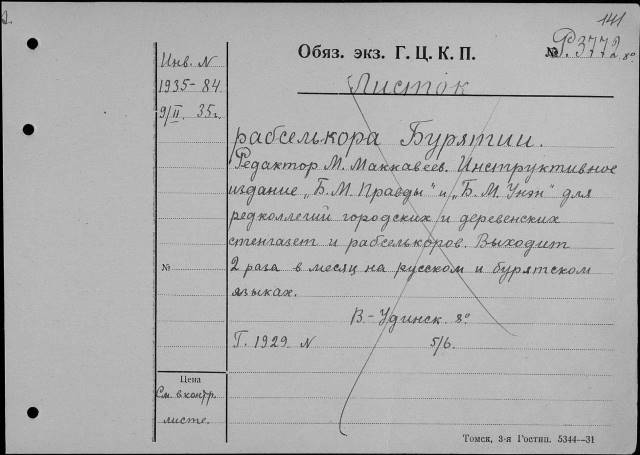 141
Обяз. экз. Г. Ц. К. П.
№ Р.3772 8º
Инв. N
1935-84
9/II. 35г.
Листок
рабселькора Бурятии.
Редактор М. Маккавеев. Инструктивное
издание „Б.М. Правды" и „Б.М. Унэн" для
редколлегий городских и деревенских
стенгазет и рабселькоров. Выходит
№
2 раза в месяц на русском и бурятском
языках.
В.-Удинск. 8º
Г. 1929 N 5/6.
Цена
См. в контр.
листе.
Томск, 3-я Гостип. 5344—31